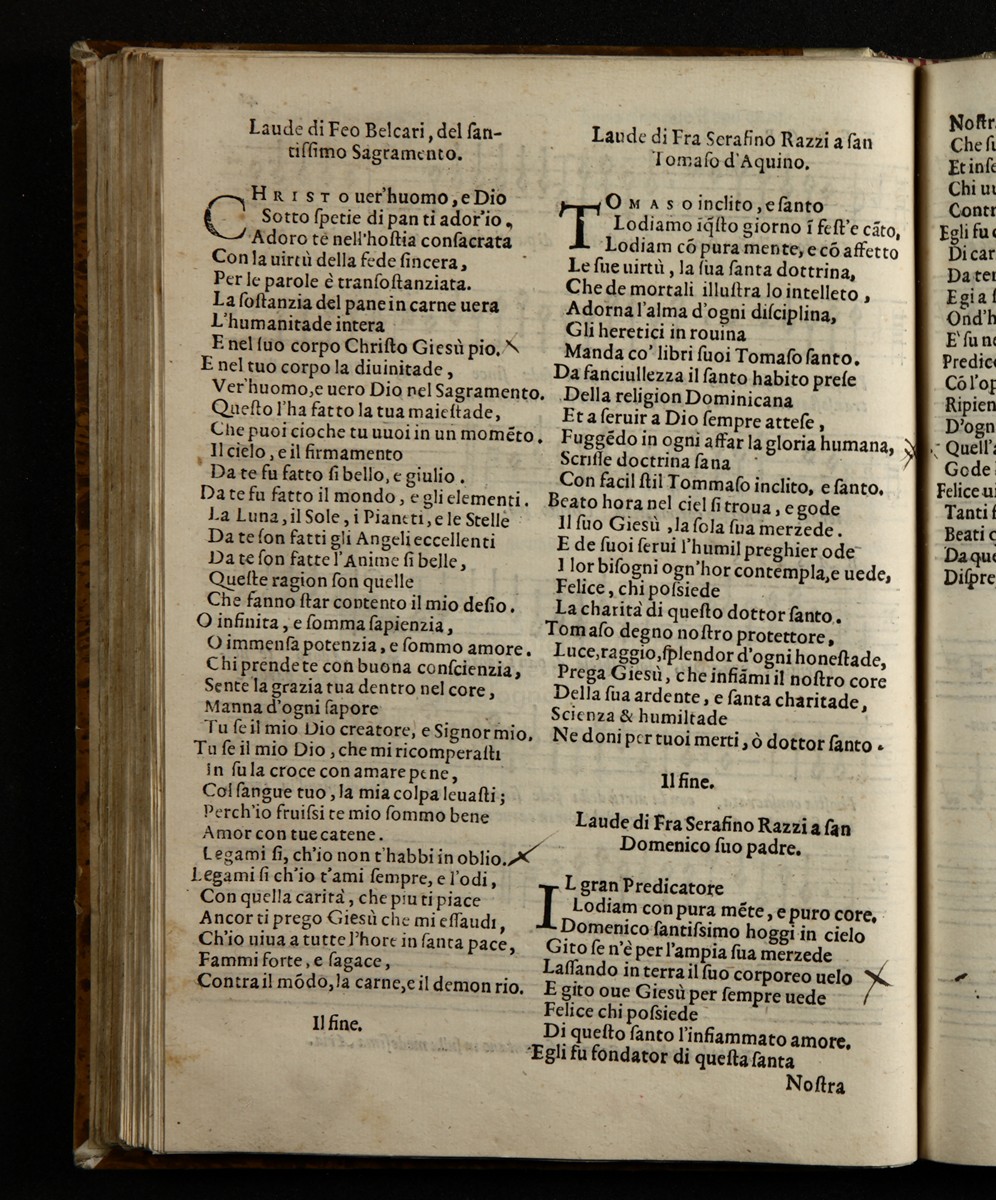 Laude di Feo Belcari, del ſan-
tiſſimo Sagramento.
CHRISTO uer'huomo, e Dio
Sotto ſpetie di pan ti ador'io,
Adoro te nell'hoſtia conſacrata
Con la uirtù della fede ſincera,
Per le parole è tranſoſtanziata.
La ſoſtanzia del pane in carne uera
L'humanitade intera
E nel ſuo corpo Chriſto Gieſù pio.
E nel tuo corpo la diuinitade,
Ver'huomo, e uero Dio nel Sagramento.
Queſto l'ha fatto la tua maieſtade,
Che puoi cioche tu uuoi in un momẽto.
Il cielo, e il firmamento
Da te fu fatto ſi bello, e giulio.
Da te fu fatto il mondo, e gli elementi.
La Luna, il Sole, i Pianeti, e le Stelle
Da te ſon fatti gli Angeli eccellenti
Da te ſon fatte l'Anime ſi belle,
Queſte ragion ſon quelle
Che fanno ſtar contento il mio deſio.
O infinita, e ſomma ſapienzia,
O immenſa potenzia, e ſommo amore.
Chi prende te con buona conſcienzia,
Sente la grazia tua dentro nel core,
Manna d'ogni ſapore
Tu ſe il mio Dio creatore, e Signor mio.
Tu ſe il mio Dio, che mi ricomperaſti
In ſu la croce con amare pene,
Col ſangue tuo, la mia colpa leuaſti;
Perch'io fruiſsi te mio ſommo bene
Amor con tue catene.
Legami ſi, ch'io non t'habbi in oblio.
Legami ſi ch'io t'ami ſempre, e l'odi,
Con quella carità, che piu ti piace
Ancor ti prego Gieſù che mi eſſaudi,
Ch'io uiua a tutte l'hore in ſanta pace,
Fammi forte, e ſagace,
Contra il mõdo, la carne, e il demon rio.
Il fine.
Laude di Fra Serafino Razzi a ſan
Tomaſo d'Aquino.
TOMASO inclito, e ſanto
Lodiamo iq̃ſto giorno ĩ feſt'e cãto,
Lodiam cõ pura mente, e cõ affetto
Le ſue uirtù, la ſua ſanta dottrina,
Che de mortali illuſtra lo intelleto,
Adorna l'alma d'ogni diſciplina,
Gli heretici in rouina
Manda co' libri ſuoi Tomaſo ſanto.
Da fanciullezza il ſanto habito preſe
Della religion Dominicana
Et a ſeruir a Dio ſempre atteſe,
Fuggẽdo in ogni affar la gloria humana,
Scriſſe doctrina ſana
Con facil ſtil Tommaſo inclito, e ſanto.
Beato hora nel ciel ſi troua, e gode
Il ſuo Gieſù, la ſola ſua merzede.
E de ſuoi ſerui l'humil preghier ode
I lor biſogni ogn'hor contempla, e uede,
Felice, chi poſsiede
La charità di queſto dottor ſanto.
Tomaſo degno noſtro protettore,
Luce, raggio, ſplendor d'ogni honeſtade,
Prega Gieſù, che infiãmi il noſtro core
Della ſua ardente, e ſanta charitade,
Scienza & humiltade
Ne doni per tuoi merti, ò dottor ſanto.
Il fine.
Laude di Fra Serafino Razzi a ſan
Domenico ſuo padre.
IL gran Predicatore
Lodiam con pura mẽte, e puro core.
Domenico ſantiſsimo hoggi in cielo
Gito ſe n'è per l'ampia ſua merzede
Laſſando in terra il ſuo corporeo uelo
E gito oue Gieſù per ſempre uede
Felice chi poſsiede
Di queſto ſanto l'infiammato amore.
Egli fu fondator di queſta ſanta
Noſtra
Noſtr
Che
Et
Chi
Contr
Egli fu
Di car
Da
E gi a
Ond'h
E' fu
Predic
Cõ l'
Ripien
D'ogn
Quell'
Gode
Felice
Tanti
Beati
Da que
Diſpre